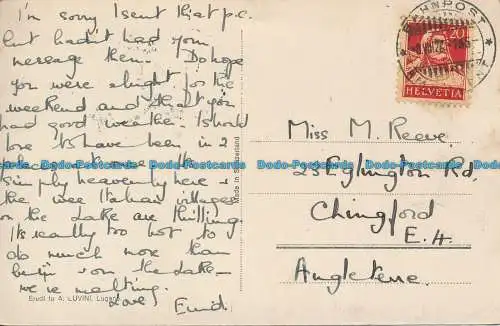 I'm sorry I sent that p.c.
but hadn't had your
message then. Do hope
you were alright for the
weekend and that you
had good weather. I should
love to have been in 2
places at once
simply heavenly here &
the wee Italian villages
on the Lake are thrilling.
It's really too hot to
do much more than
be in & on the Lake –
we're melting.
Love
Made in Switzerland
Eredi fu A. LUVINI, Lugano
BAHNPOST
20
HELVETIA
Miss M. Reeve.
25 Eglington Rd.
Chingford
E.4.
Angleterre.
Dodo-Postcards